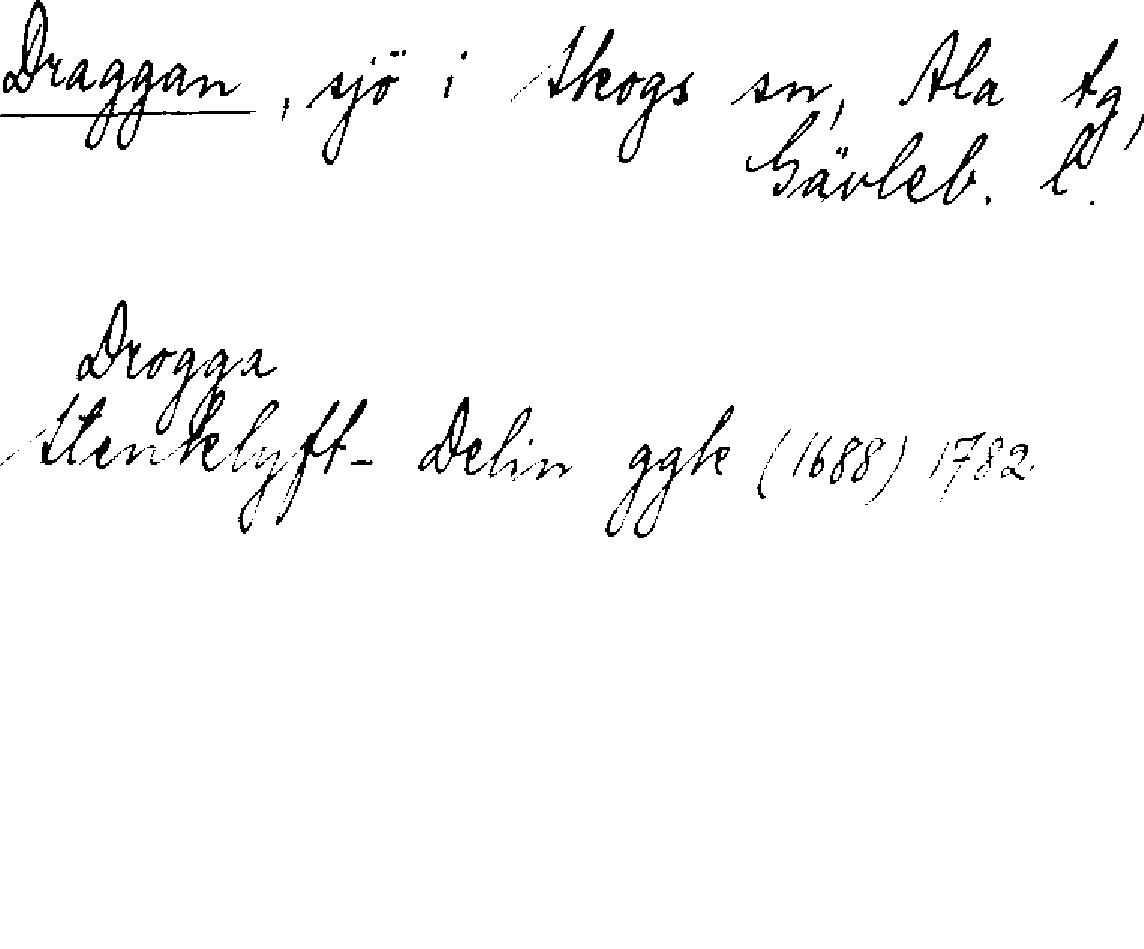 Draggan, sjö i Skogs sn, Ala tg,
Gävleb. l.
Drogga
Stenklyft- Delin ggk (1688) 1782